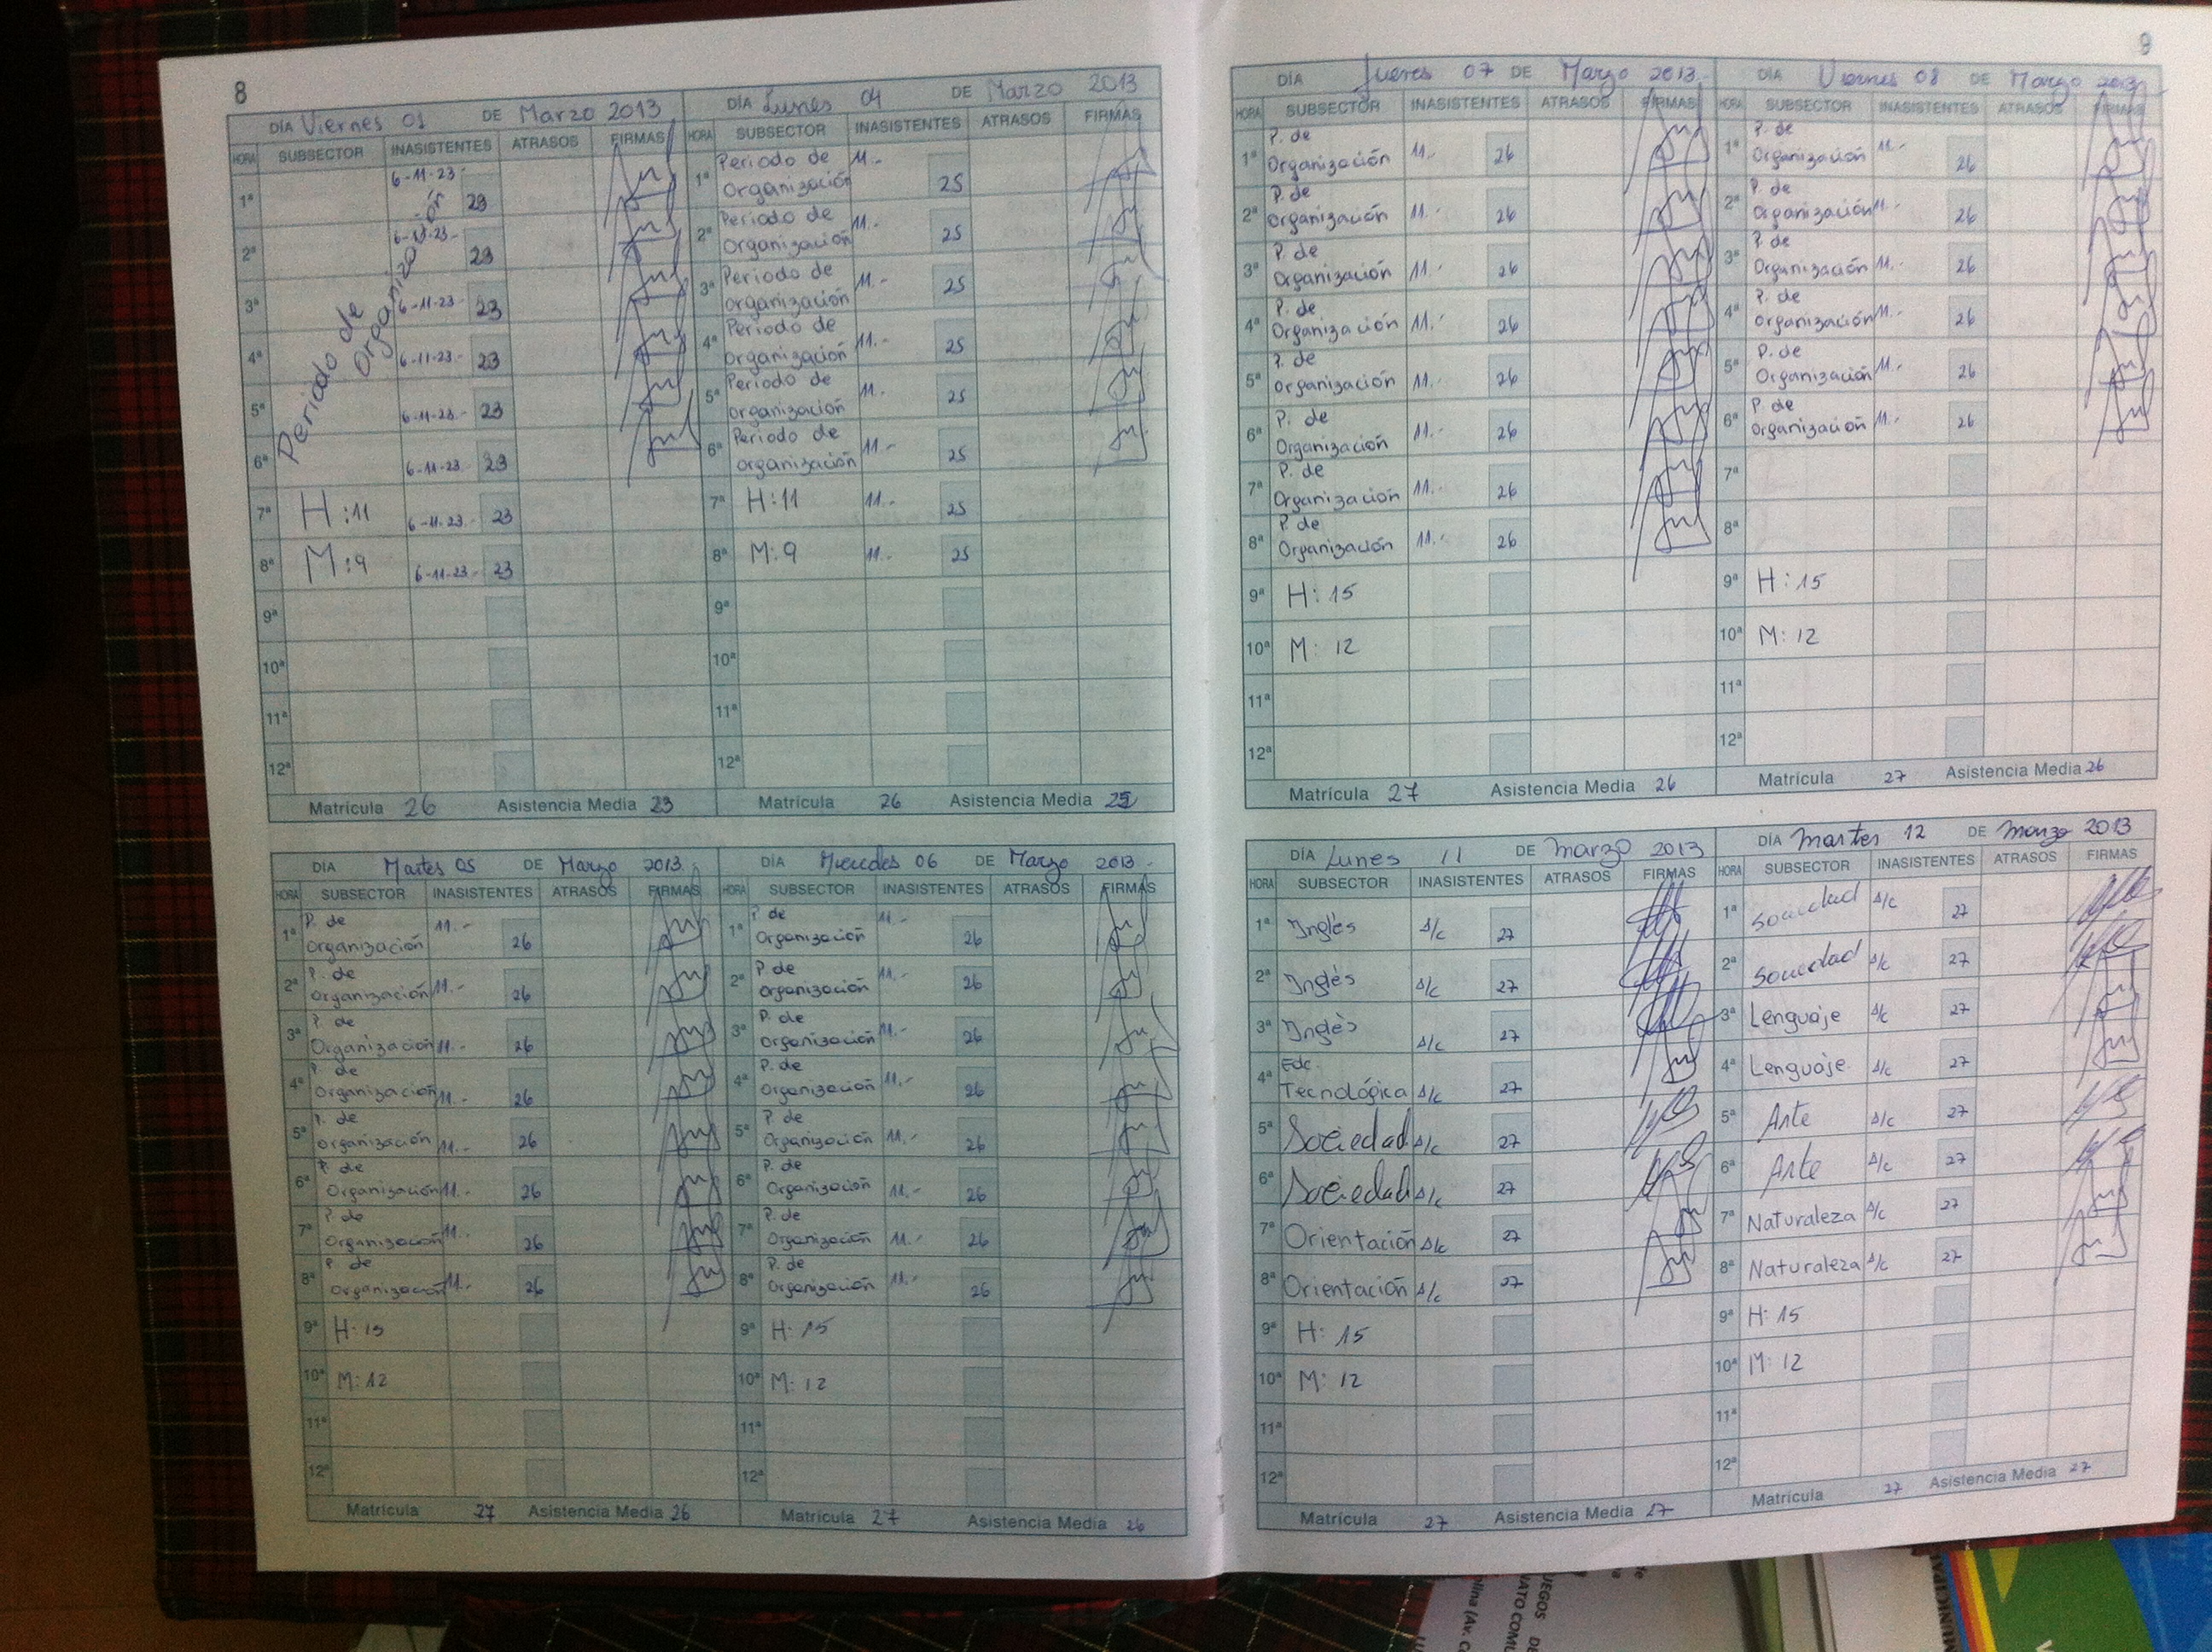 8
DÍA Viernes 01 DE Marzo 2013
HORA SUBSECTOR INASISTENTES ATRASOS FIRMAS
1ª 6-11-23.- 23
2ª 6-11-23.- 23
3ª 6-11-23.- 23
4ª 6-11-23.- 23
5ª 6-11-23.- 23
6ª 6-11-23.- 23
Periodo de
Organización
7ª H:11 6-11-23.- 23
8ª M:9 6-11-23.- 23
9ª
10ª
11ª
12ª
Matrícula 26 Asistencia Media 23
DÍA Lunes 04 DE Marzo 2013
HORA SUBSECTOR INASISTENTES ATRASOS FIRMAS
1ª Periodo de Organización 11.- 25
2ª Periodo de Organización 11.- 25
3ª Periodo de Organización 11.- 25
4ª Periodo de Organización 11.- 25
5ª Periodo de Organización 11.- 25
6ª Periodo de Organización 11.- 25
7ª H:11 11.- 25
8ª M:9 11.- 25
9ª
10ª
11ª
12ª
Matrícula 26 Asistencia Media 25
DÍA Martes 05 DE Marzo 2013
HORA SUBSECTOR INASISTENTES ATRASOS FIRMAS
1ª P. de Organización 11.- 26
2ª P. de Organización 11.- 26
3ª P. de Organización 11.- 26
4ª P. de Organización 11.- 26
5ª P. de Organización 11.- 26
6ª P. de Organización 11.- 26
7ª P. de Organización 11.- 26
8ª P. de Organización 11.- 26
9ª H:15
10ª M:12
11ª
12ª
Matrícula 27 Asistencia Media 26
DÍA Miercoles 06 DE Marzo 2013.
HORA SUBSECTOR INASISTENTES ATRASOS FIRMAS
1ª P. de Organización 11.- 26
2ª P. de Organización 11.- 26
3ª P. de Organización 11.- 26
4ª P. de Organización 11.- 26
5ª P. de Organización 11.- 26
6ª P. de Organización 11.- 26
7ª P. de Organización 11.- 26
8ª P. de Organización 11.- 26
9ª H:15
10ª M:12
11ª
12ª
Matrícula 27 Asistencia Media 26
9
DÍA Jueves 07 DE Marzo 2013.
HORA SUBSECTOR INASISTENTES ATRASOS FIRMAS
1ª P. de Organización 11.- 26
2ª P. de Organización 11.- 26
3ª P. de Organización 11.- 26
4ª P. de Organización 11.- 26
5ª P. de Organización 11.- 26
6ª P. de Organización 11.- 26
7ª P. de Organización 11.- 26
8ª P. de Organización 11.- 26
9ª H:15
10ª M:12
11ª
12ª
Matrícula 27 Asistencia Media 26
DÍA Viernes 08 DE Marzo 2013
HORA SUBSECTOR INASISTENTES ATRASOS FIRMAS
1ª P. de Organización 11.- 26
2ª P. de Organización 11.- 26
3ª P. de Organización 11.- 26
4ª P. de Organización 11.- 26
5ª P. de Organización 11.- 26
6ª P. de Organización 11.- 26
7ª
8ª
9ª H:15
10ª M:12
11ª
12ª
Matrícula 27 Asistencia Media 26
DÍA Lunes 11 DE Marzo 2013
HORA SUBSECTOR INASISTENTES ATRASOS FIRMAS
1ª Inglés s/c 27
2ª Inglés s/c 27
3ª Inglés s/c 27
4ª Edc. Tecnológica s/c 27
5ª Sociedad s/c 27
6ª Sociedad s/c 27
7ª Orientación s/c 27
8ª Orientación s/c 27
9ª H:15
10ª M:12
11ª
12ª
Matrícula 27 Asistencia Media 27
DÍA Martes 12 DE Marzo 2013
HORA SUBSECTOR INASISTENTES ATRASOS FIRMAS
1ª Sociedad s/c 27
2ª Sociedad s/c 27
3ª Lenguaje s/c 27
4ª Lenguaje. s/c 27
5ª Arte s/c 27
6ª Arte s/c 27
7ª Naturaleza s/c 27
8ª Naturaleza s/c 27
9ª H:15
10ª M:12
11ª
12ª
Matrícula 27 Asistencia Media 27
MUNICIPAL